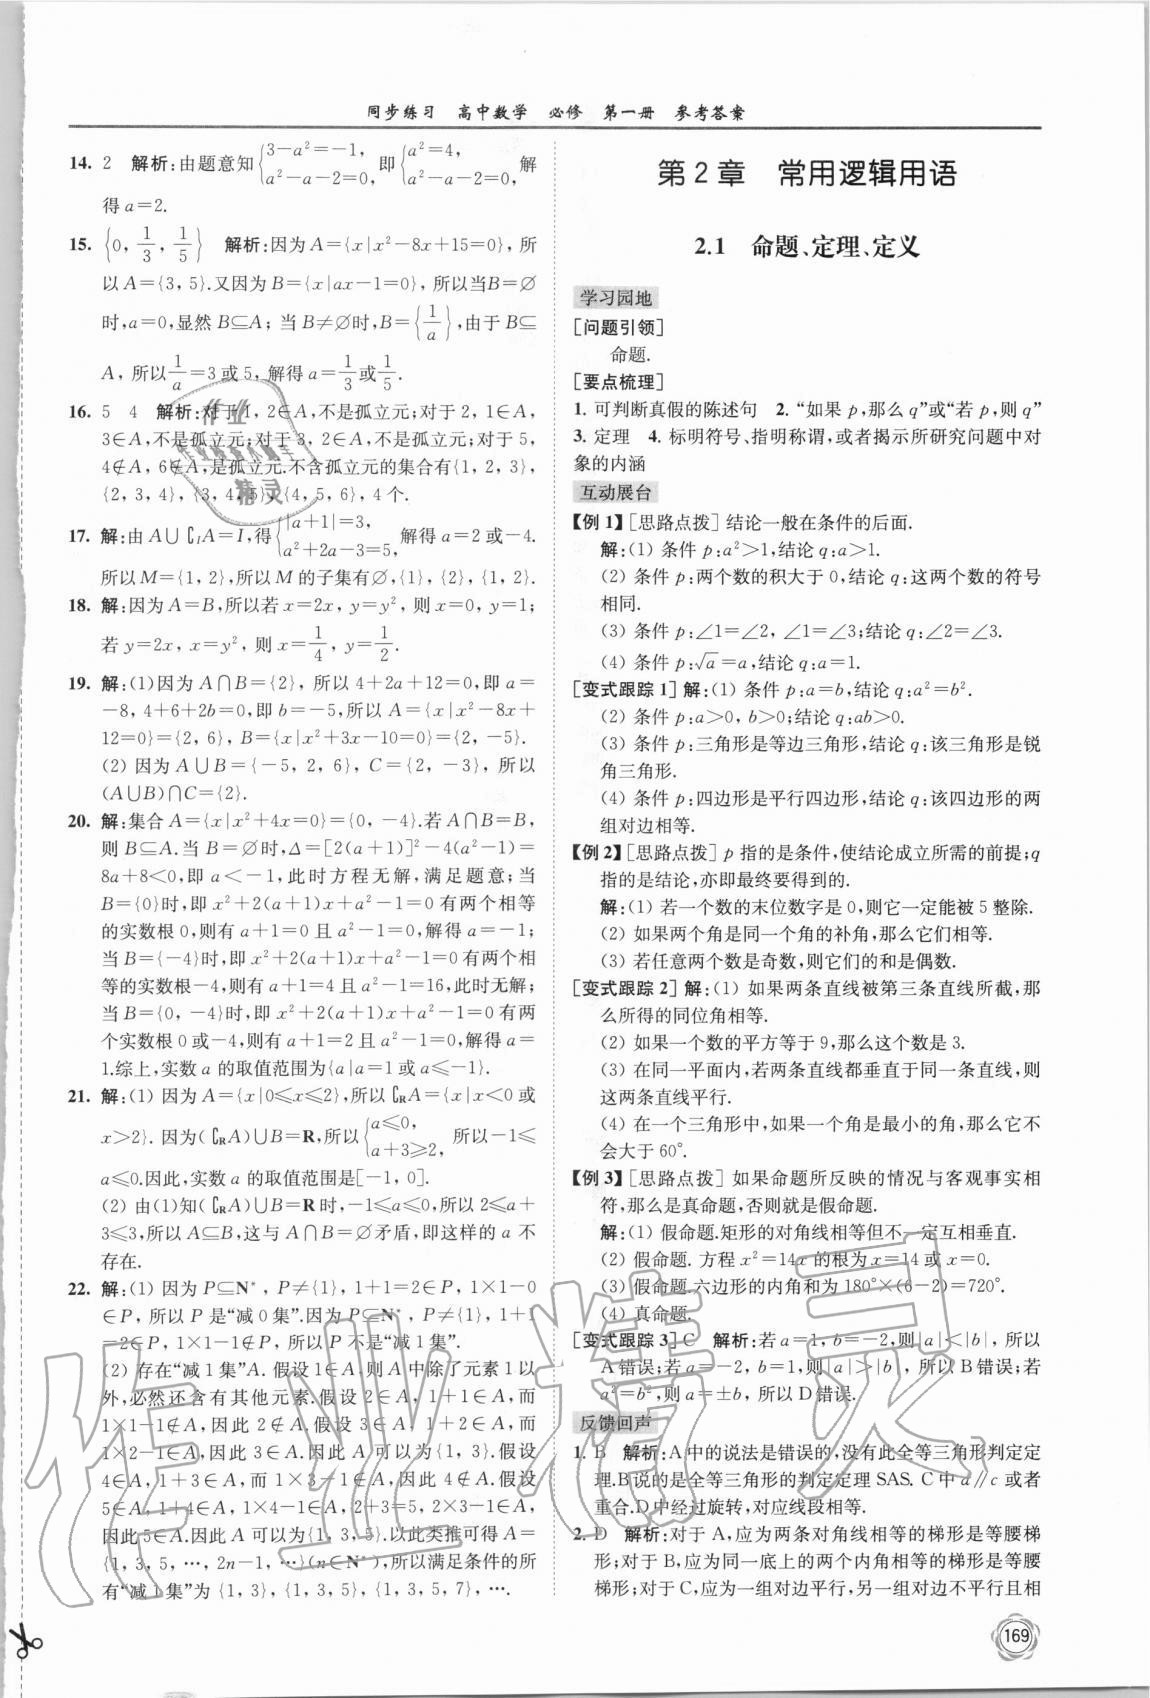 同步练习 高中数学 必修 第一册 参考答案
14. 2 解析:由题意知{3-a²=-1, a²-a-2=0, 即{a²=4, a²-a-2=0, 解
得 a=2.
15. {0, 1/3, 1/5} 解析:因为 A={x|x²-8x+15=0},所
以 A={3,5}.又因为 B={x|ax-1=0},所以当 B=∅
时,a=0,显然 B⊆A; 当 B≠∅时,B={1/a},由于 B⊆
A, 所以 1/a=3 或 5, 解得 a=1/3 或 1/5.
16. 5 4 解析:对于 1, 2∈A,不是孤立元;对于 2, 1∈A,
3∈A,不是孤立元;对于 3, 2∈A,不是孤立元;对于 5,
4∉A, 6∉A,是孤立元.不含孤立元的集合有{1, 2, 3},
{2, 3, 4}, {3, 4, 5}, {4, 5, 6}, 4 个.
17. 解:由 A∪∁IA=I,得{|a+1|=3, a²+2a-3=5, 解得 a=2 或-4.
所以 M={1, 2},所以 M 的子集有∅,{1}, {2}, {1, 2}.
18. 解:因为 A=B,所以若 x=2x, y=y², 则 x=0, y=1;
若 y=2x, x=y², 则 x=1/4, y=1/2.
19. 解:(1)因为 A∩B={2}, 所以 4+2a+12=0,即 a=
-8, 4+6+2b=0,即 b=-5,所以 A={x|x²-8x+
12=0}={2, 6}, B={x|x²+3x-10=0}={2, -5}.
(2) 因为 A∪B={-5, 2, 6}, C={2, -3}, 所以
(A∪B)∩C={2}.
20. 解:集合 A={x|x²+4x=0}={0, -4}.若 A∩B=B,
则 B⊆A.当 B=∅时,Δ=[2(a+1)]²-4(a²-1)=
8a+8<0,即 a<-1,此时方程无解,满足题意;当
B={0}时,即 x²+2(a+1)x+a²-1=0 有两个相等
的实数根 0,则有 a+1=0 且 a²-1=0,解得 a=-1;
当 B={-4}时,即 x²+2(a+1)x+a²-1=0 有两个相
等的实数根-4,则有 a+1=4 且 a²-1=16,此时无解;
当 B={0, -4}时,即 x²+2(a+1)x+a²-1=0 有两
个实数根 0 或-4,则有 a+1=2 且 a²-1=0,解得 a=
1.综上,实数 a 的取值范围是{a|a=1 或 a≤-1}.
21. 解:(1) 因为 A={x|0≤x≤2},所以 ∁RA={x|x<0 或
x>2}. 因为(∁RA)∪B=R,所以{a≤0, a+3≥2, 所以-1≤
a≤0.因此,实数 a 的取值范围是[-1, 0].
(2) 由(1)知(∁RA)∪B=R时,-1≤a≤0,所以 2≤a+
3≤3,所以 A⊆B,这与 A∩B=∅矛盾,即这样的 a 不
存在.
22. 解:(1) 因为 P⊆N*, P≠{1}, 1+1=2∈P, 1×1-0
∈P, 所以 P 是“减 0 集”.因为 P⊆N*, P≠{1}, 1+1
=2∈P, 1×1-1∉P, 所以 P 不是“减 1 集”.
(2) 存在“减 1 集”A. 假设 1∈A,则 A 中除了元素 1 以
外,必然还含有其他元素.假设 2∈A, 1+1∈A, 而
1×1-1∉A, 因此 2∉A. 假设 3∈A, 1+2∈A, 而
1×2-1∈A, 因此 3∈A. 因此 A 可以为{1, 3}.假设
4∈A, 1+3∈A, 而 1×3-1∉A, 因此 4∉A. 假设
5∈A, 1+4∈A, 1×4-1∈A, 2+3=5, 2×3-1∈A,
因此 5∈A.因此 A 可以为{1, 3, 5}.以此类推可得 A=
{1, 3, 5, …, 2n-1, …}(n∈N*),所以满足条件的所
有“减 1 集”为 {1, 3}, {1, 3, 5}, {1, 3, 5, 7}, ….
第 2 章 常用逻辑用语
2.1 命题、定理、定义
学习园地
[问题引领]
命题.
[要点梳理]
1. 可判断真假的陈述句 2. “如果 p,那么 q”或“若 p,则 q”
3. 定理 4. 标明符号、指明称谓,或者揭示所研究问题中对
象的内涵
互动展台
【例 1】[思路点拨] 结论一般在条件的后面.
解:(1) 条件 p:a²>1,结论 q:a>1.
(2) 条件 p:两个数的积大于 0,结论 q:这两个数的符号
相同.
(3) 条件 p:∠1=∠2, ∠1=∠3;结论 q:∠2=∠3.
(4) 条件 p:√a=a,结论 q:a=1.
[变式跟踪 1] 解:(1) 条件 p:a=b,结论 q:a²=b².
(2) 条件 p:a>0, b>0;结论 q:ab>0.
(3) 条件 p:三角形是等边三角形,结论 q:该三角形是锐
角三角形.
(4) 条件 p:四边形是平行四边形,结论 q:该四边形的两
组对边相等.
【例 2】[思路点拨] p 指的是条件,使结论成立所需的前提;q
指的是结论,亦即最终要得到的.
解:(1) 若一个数的末位数字是 0,则它一定能被 5 整除.
(2) 如果两个角是同一个角的补角,那么它们相等.
(3) 若任意两个数是奇数,则它们的和是偶数.
[变式跟踪 2] 解:(1) 如果两条直线被第三条直线所截,那
么所得的同位角相等.
(2) 如果一个数的平方等于 9,那么这个数是 3.
(3) 在同一平面内,若两条直线都垂直于同一条直线,则
这两条直线平行.
(4) 在一个三角形中,如果一个角是最小的角,那么它不
会大于 60°.
【例 3】[思路点拨] 如果命题所反映的情况与客观事实相
符,那么是真命题,否则就是假命题.
解:(1) 假命题.矩形的对角线相等但不一定互相垂直.
(2) 假命题. 方程 x²=14x 的根为 x=14 或 x=0.
(3) 假命题.六边形的内角和为 180°×(6-2)=720°.
(4) 真命题.
[变式跟踪 3] C 解析:若 a=1, b=-2,则|a|<|b|,所以
A 错误;若 a=-2, b=1,则|a|>|b|, 所以 B 错误;若
a²=b²,则 a=±b, 所以 D 错误.
反馈回声
1. B 解析:A 中的说法是错误的,没有此全等三角形判定定
理.B 说的是全等三角形的判定定理 SAS. C 中 a∥c 或者
重合.D 中经过旋转,对应线段相等.
2. D 解析:对于 A,应为两条对角线相等的梯形是等腰梯
形;对于 B,应为同一底上的两个内角相等的梯形是等腰
梯形;对于 C,应为一组对边平行,另一组对边不平行且相
169
作业精灵